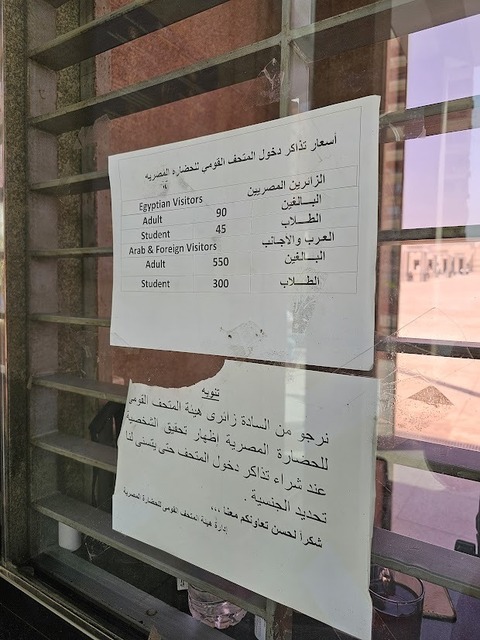 أسعار تذاكر دخول المتحف القومي للحضاره المصريه
Egyptian Visitors الزائرين المصريين
Adult 90 البـــالغين
Student 45 الطـــلاب
Arab & Foreign Visitors العرب والاجانب
Adult 550 البـــالغين
Student 300 الطـــلاب
تنويه
نرجو من السادة زائرى هيئة المتحف القومى
للحضارة المصرية اظهار تحقيق الشخصية
عند شراء تذاكر دخول المتحف حتى يتسنى لنا
تحديد الجنسية .
شكرا لحسن تعاونكم معنا ...
إدارة هيئة المتحف القومى للحضارة المصرية